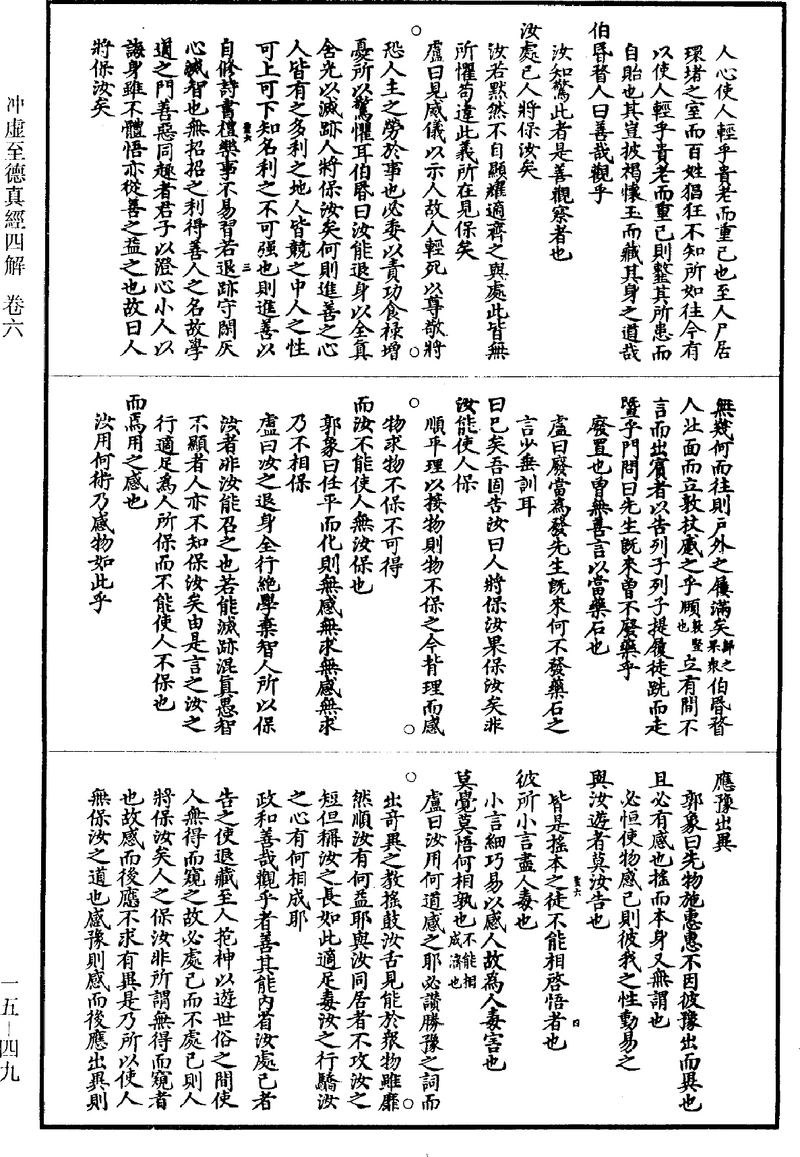 人心使人輕乎貴老而重己也至人尸居
環堵之室而百姓猖狂不知所如往今有
以使人輕乎貴老而重己則整其所患而
自貽也其豈披褐懷玉而藏其身之道哉
伯昏瞀人曰善哉觀乎
汝知驚此者是善觀察者也
汝處已人將保汝矣
汝若默然不自顯耀適齊之與處此皆無
所懼苟違此義所在見保矣
盧曰見威儀以示人故人輕死以尊敬將
恐人主之勞於事也必委以責功食祿增
憂所以驚懼耳伯昏曰汝能退身以全真
含光以滅跡人將保汝矣何則進善之心
人皆有之多利之地人皆競之中人之性
可上可下知名利之不可强也則進善以
自修詩書禮樂事不易習若退跡守閑灰
聖六
三
心滅智也無招招之利得善人之名故學
道之門善惡同趣者君子以澄心小人以
誨身雖不體悟亦從善之益之也故曰人
將保汝矣
無幾何而往則戶外之屨滿矣歸之果眾伯昏瞀
人北面而立敦杖蹙之乎頤敦竪也立有間不
言而出賓者以告列子列子提履徒跣而走
暨乎門問曰先生既來曾不廢藥乎
廢置也曾無善言以當藥石也
盧曰廢當為發先生既來何不發藥石之
言少垂訓耳
曰已矣吾固告汝曰人將保汝果保汝矣非
汝能使人保
順乎理以接物則物不保之今背理而感
物求物不保不可得
而汝不能使人無汝保也
郭象曰任乎而化則無感無求無感無求
乃不相保
盧曰汝之退身全行絕學棄智人所以保
汝者非汝能召之也若能滅跡混真愚智
不顯者人亦不知保汝矣由是言之汝之
行適足為人所保而不能使人不保也
而焉用之感也
汝用何術乃感物如此乎
應豫出異
郭象曰先物施惠惠不因彼豫出而異也
且必有感也搖而本身又無謂也
必恒使物感己則彼我之性動易之
與汝遊者莫汝告也
皆是搖本之徒不能相啓悟者也
聖六
四
彼所小言盡人毒也
小言細巧易以感人故為人毒害也
莫覺莫悟何相孰也不能相成濟也
盧曰汝用何道感之耶必讚勝豫之詞而
出奇異之教搖鼓汝舌見能於眾物雖靡
然順汝有何益耶與汝同居者不攻汝之
短但稱汝之長如此適足毒汝之行驕汝
之心有何相成耶
政和善哉觀乎者善其能內省汝處己者
告之使退藏至人抱神以遊世俗之間使
人無得而窺之故必處己而不處己則人
將保汝矣人之保汝非所謂無得而窺者
也故感而後應不求有異是乃所以使人
無保汝之道也感豫則感而後應出異則
冲虛至德真經四解 卷六
一五—四九